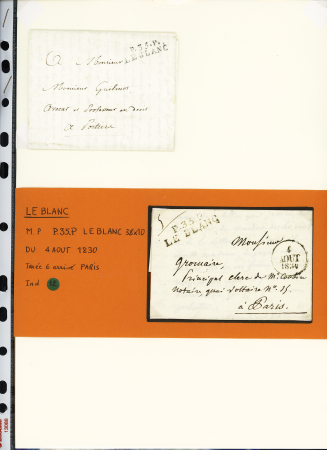 P.35.P.
LE BLANC
A Monsieur
Monsieur
Avocat et Professeur en droit
a Poitiers
LE BLANC
M P P.35.P LE BLANC 38x10
DU 4 AOUT 1830
Taxée 6 arrivé PARIS
Ind 12
P.35.P.
LE BLANC
4
AOUT
1830
Monsieur
Gromaire,
Principal clerc de Mr.
notaire quai Voltaire No.
à Paris.